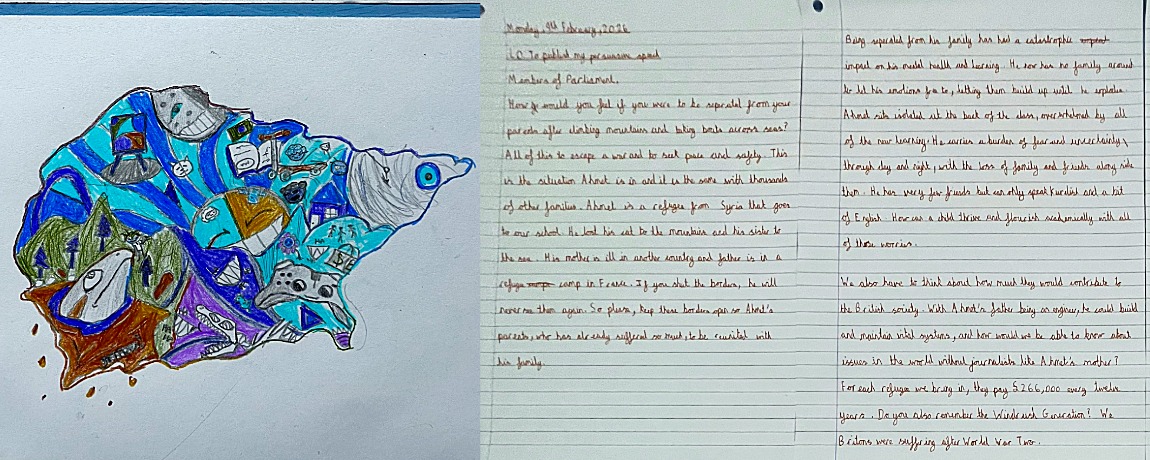 Monday, 9th February, 2026
LO: To publish my persuasive speech
Members of Parliament,
How would you feel if you were to be seperated from your
parents after climbing mountains and taking boats across seas?
All of this to escape a war and to seek peace and safety. This
is the situation Ahmet is in and it is the same with thousands
of other families. Ahmet is a refugee from Syria that goes
to our school. He lost his cat to the mountains and his sister to
the sea. His mother is ill in another country and father is in a
refugee camp in France. If you shut the borders, he will
never see them again. So please, keep these borders open so Ahmet's
parents, who has already suffered so much, to be reunited with
his family.
Being seperated from his family has had a catastrophic
impact on his mental health and learning. He now has no family around
to let his emotions free to, letting them build up until he explodes.
Ahmet sits isolated at the back of the class, overwhelmed by all
of the new learning. He carries a burden of fear and uncertainty
through day and night, with the loss of family and friends along side
them. He has very few friends but can only speak Kurdish and a bit
of English. How can a child thrive and flourish academically with all
of those worries.
We also have to think about how much they would contribute to
the British society. With Ahmet's father being an engineer, he could build
and maintain vital systems, and how would we be able to know about
issues in the world without journalists like Ahmet's mother?
For each refugee we bring in, they pay £266,000 every twelve
years. Do you also remember the Windrush Generation? We
Britons were suffering after World War Two.